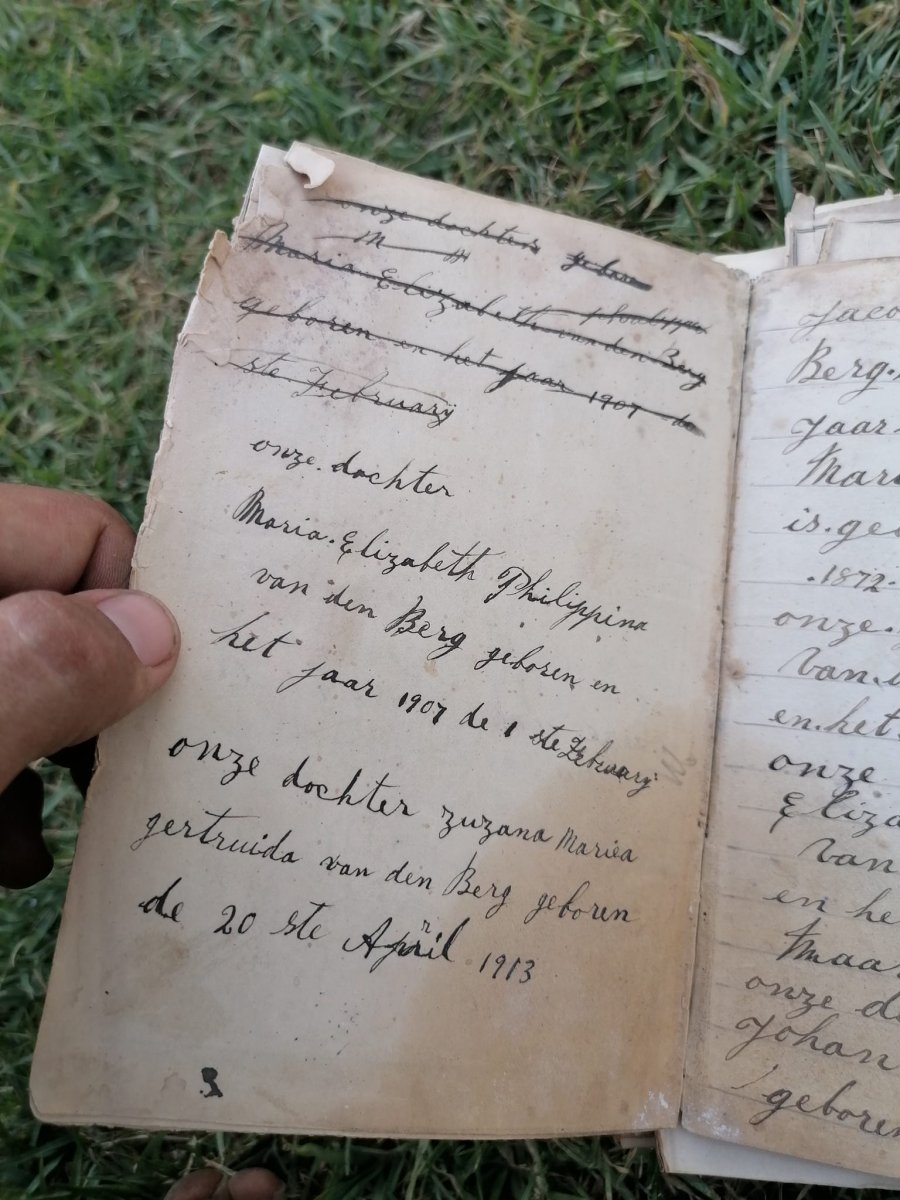 onze dochter geboren
M
Maria Elizabeth van den Berg
geboren en het jaar 1907 de
ste February
onze. dochter
Maria. Elizabeth Philippina
van den Berg geboren en
het jaar 1907 de 1 ste February
onze dochter zuzana Maria
gertruida van den Berg geboren
de 20 ste April 1913
3
Jaco
Berg.
Jaar
Mar
is. ge
.1872.
onze.
Van.
en. het.
onze
Eliza
Van
en he
Maa
onze d
Johan
geboren